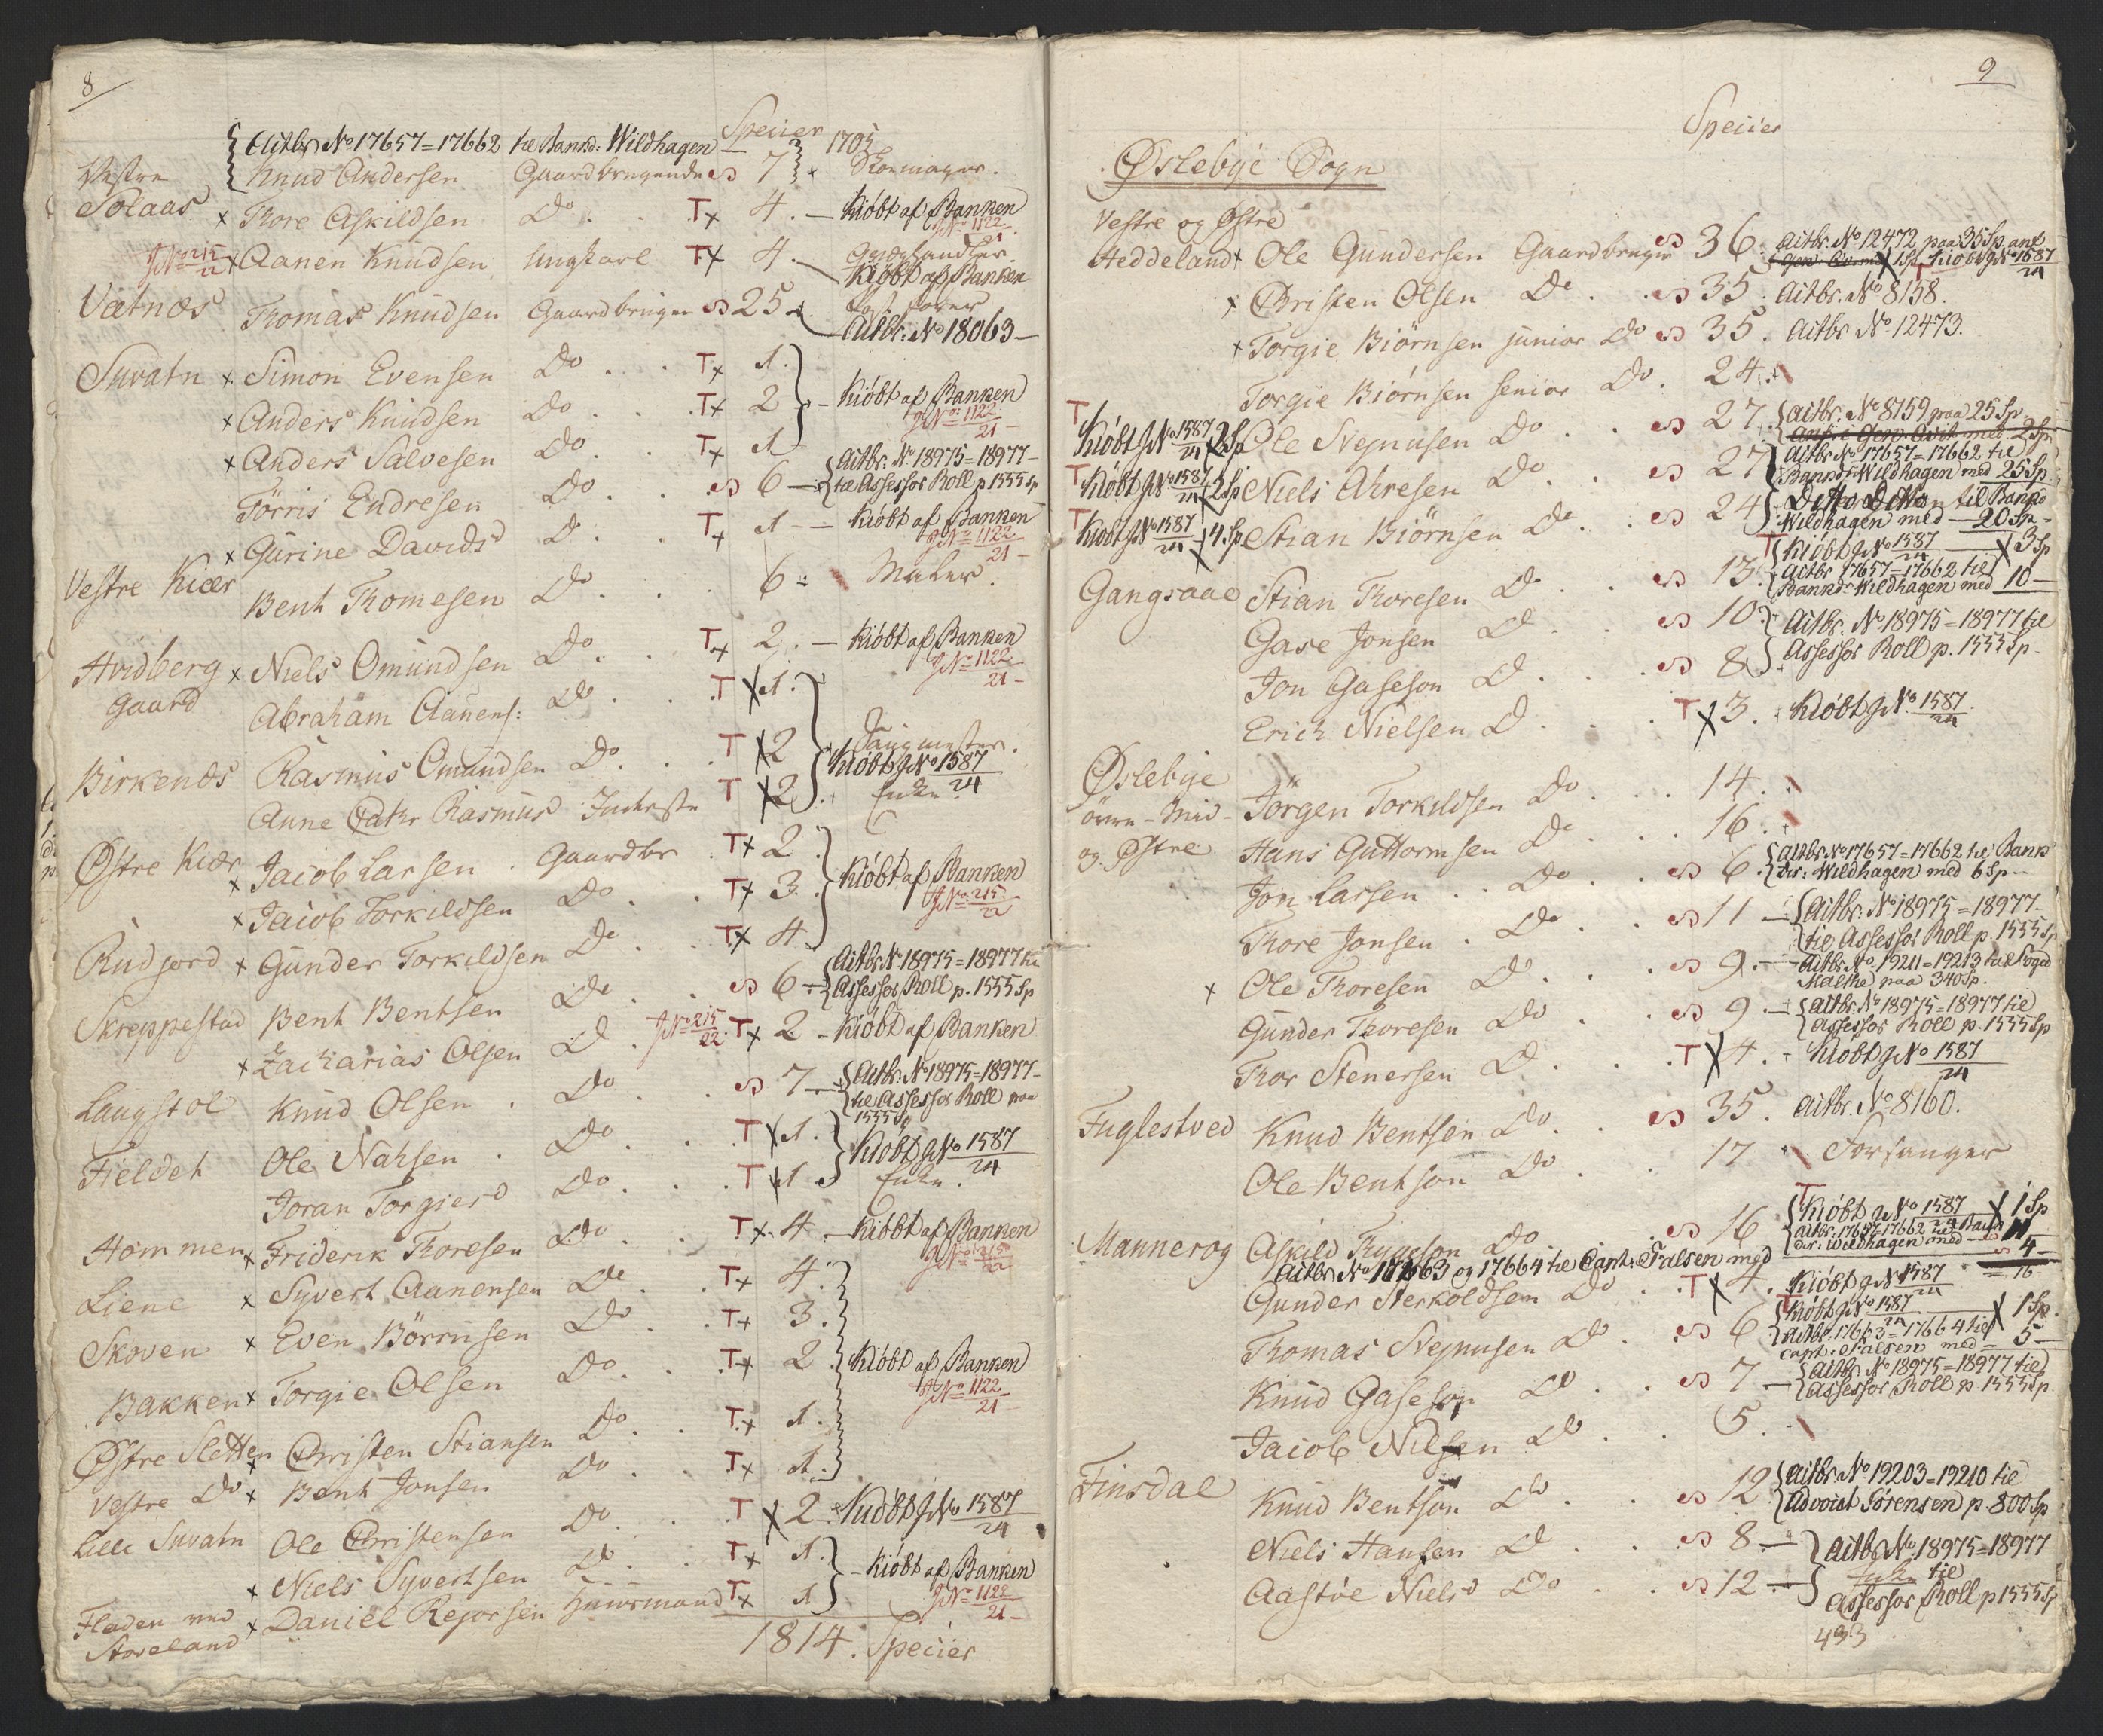 8
Specier 1705
Actbr No 17657=17662 til Bankd: Wildhagen
Vestre Knud Andersen Gaardbrugende 7 Skoemager.
Solaas x Thore Askildsen Do T x 4. – Kiöbt af Banken
J No 1122/21
J No 215/22 x Aanen Knudsen Ungkarl T x 4. Kiöbt af Banken
Vatnæs Thomas Knudsen Gaardbruger 25
Actbr: No 18063 –
Suvatn x Simon Evensen Do T x 1.
x Anders Knudsen Do T x 2 – Kiöbt af Banken
J No 1122/21
x Anders Salvesen Do T x 1
Törris Endresen Do 6 – Actbr. No 18975=18977 –
til Assessor Roll p 1555 Sp
x Gurine Davids D. T x 1 – Kiöbt af Banken
J No 1122/21
Vestre Kiær Bent Thomesen Do 6 Maler.
Hvidberg x Niels Omundsen Do T x 2. – Kiöbt af Banken
J No 1122/21
gaard Abraham Aanens: Do T x 1.
Birkenæs Rasmus Omundsen Do T x 2
Kiöbt J No 1587/24
Anne Cathr Rasmus T x 2. Enke
Östre Kiær x Jacob Larsen Gaardbr T x 2.
x Jacob Torkildsen Do T x 3. Kiöbt af Banken
J No 215/22
Rudjord x Gunder Torkildsen Do T x 4.
Skreppestad Bent Bentsen Do 6 – Actbr No 18975=18977 til
Assessor Roll p. 1555 Sp
x Zacharias Olsen D J No 215/22 T x 2 – Kiöbt af Banken
Laugstol Knud Olsen Do 7 – Actbr. No 18975=18977 –
til Assessor Roll paa
1555 Sp
Fieldet Ole Nahsen Do T x 1. Kiobt J No 1587/24
Joran Torgiers Do T x 1 Enke.
Hommen x Friderik Thoresen Do T x 4 – Kiöbt af Banken
J No 215/22
Liene x Syvert Aanensen Do T x 4.
Skoven x Even Börrnsen Do T x 3.
Bakken x Torgie Olsen Do T x 2 Kiöbt af Banken
J No 1122/21
Östre Sletten x Christen Stiansen Do T x 1.
Vestre Do x Bent Jonsen Do T x 1.
Lille Suvatn Ole Christensen Do T x 2 Kiöbt J No 1587/24
x Niels Syvertsen Do T x 1. – Kiöbt af Banken
Fladen ved x Daniel Rejorsen Huusmand T x 1 J No 1122/21
Storeland
1814. Specier
9
Specier
Öslebye Sogn
Vestre og Östre
Heddeland x Ole Gundersen Gaardbruger 36 Actbr. No 12472 paa 35 Sp. anf
1 Sp Kiöbt J No 1587/24
x Christen Olsen Do 35. Actbr. No 8158.
x Torgie Biörnsen junior Do 35. Actbr No 12473.
Torgie Biörnsen senior Do. 24.
T Kiöbt J No 1587/24 x 2 Sp Ole Stejnusen Do 27. Actbr. No 8159 paa 25 Sp
T Kiöbt J No 1587/24 2 Sp Niels Ahresen Do 27 Actbr No 17657=17662 til
Bankdr Wildhagen med 25 Sp
T Kiöbt J No 1587/24 4 Sp Stian Biörnsen Do 24 Ditto Ditto til Bankd
Wildhagen med – 20 Sp –
T Kiöbt J No 1587/24 x 3 Sp
Gangsaae Stian Thoresen Do 13. Actbr 17657=17662 til
Bankdr Wildhagen med 10 –
Gase Jonsen D 10 Actbr. No 18975=18977 til
Jon Gaseson D 8 Assessor Roll p. 1555 Sp
Erich Nielsen D T x 3. Kiöbt J No. 1587/24
Öslebye Jörgen Torkildsen Do 14.
övre – Mid – Hans Guttormsen Do 16.
og Östre Jon Larsen Do 6 Actbr. No 17657=17662 til Bank
dir: Wildhagen med 6 Sp –
Thore Jonsen Do 11 – Actbr. No 18975=18977.
til Assessor Roll p. 1555 Sp
x Ole Thoresen Do 9. – Actbr No. 19211=19213 til Foged
Malthe paa 340 Sp.
Gunder Tworesen Do 9 – Actbr. No 18975=18977 til
Assessor Roll p. 1555 Sp
Thor Stenersen D T x 4. Kiöbt J No 1587/24
Fuglestved Knud Bentsen Do 35. Actbr. No 8160.
Ole Bentson Do 17 Forsanger
T Kiöbt J No 1587/24 x 1 Sp
Mannerog Askild Do 16 Actbr. 17657=17662 til Bank
dir: Wildhagen med – 11
Actbr No 17663 og 17664 til Capt: Falsen med 4 –
= 16
Gunder Sterkoldsen Do T x 4. Kiöbt J No 1587/24
T Kiöbt J No 1587/24 x 1 Sp.
Thomas Stejnusen Do 6 Actbr. 17663=17664 til
Capt: Falsen med – 5 –
Knud Gaseson D 7 – Actbr. No 18975=18977 til
Assessor Roll p. 1555 Sp
Jacob Nilsen Do 5.
Finsdal Knud Bentson Do 12 Actbr. No 19203=19210 til
Advocat Sörensen p. 800 Sp
Niels Hansen D 8 – Actbr No. 18975=18977
Aastöe Niels Do 12 – Enke til
Assessor Roll p 1555 Sp
493